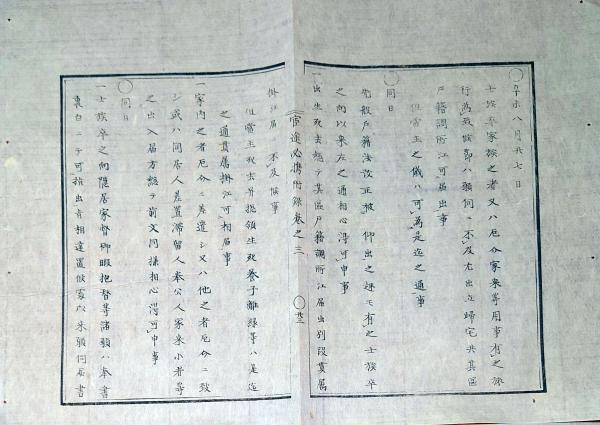 〇辛未八月廿七日
士族卒家族之者又ハ厄介家来等用事有之旅
行為致候節ハ願伺ニ不及尤出立帰宅共其区
戸籍調所江可届出事
但當主之儀ハ可為是迄之通事
〇同日
先般戸籍法改正被　仰出之趣モ有之士族卒
之向以来左之通相心得可申事
一出生死去総テ其区戸籍調所江届出別段其属
官途必携附録巻之三
掛江届ニ不及候事
但當主死去并揔領生死養子離縁等ハ是迄
之通其属掛江可相届事
一家内之者厄介ニ差遣シ又ハ他之者厄介ニ致
シ或ハ同居人差置滞留人奉公人家来小者等
之出入届方総テ前文同様相心得可申事
〇同日
一士族卒之向隠居家督御暇抱替等諸願ハ奉書
裏白ニテ可指出旨相達置候處以来願伺届書